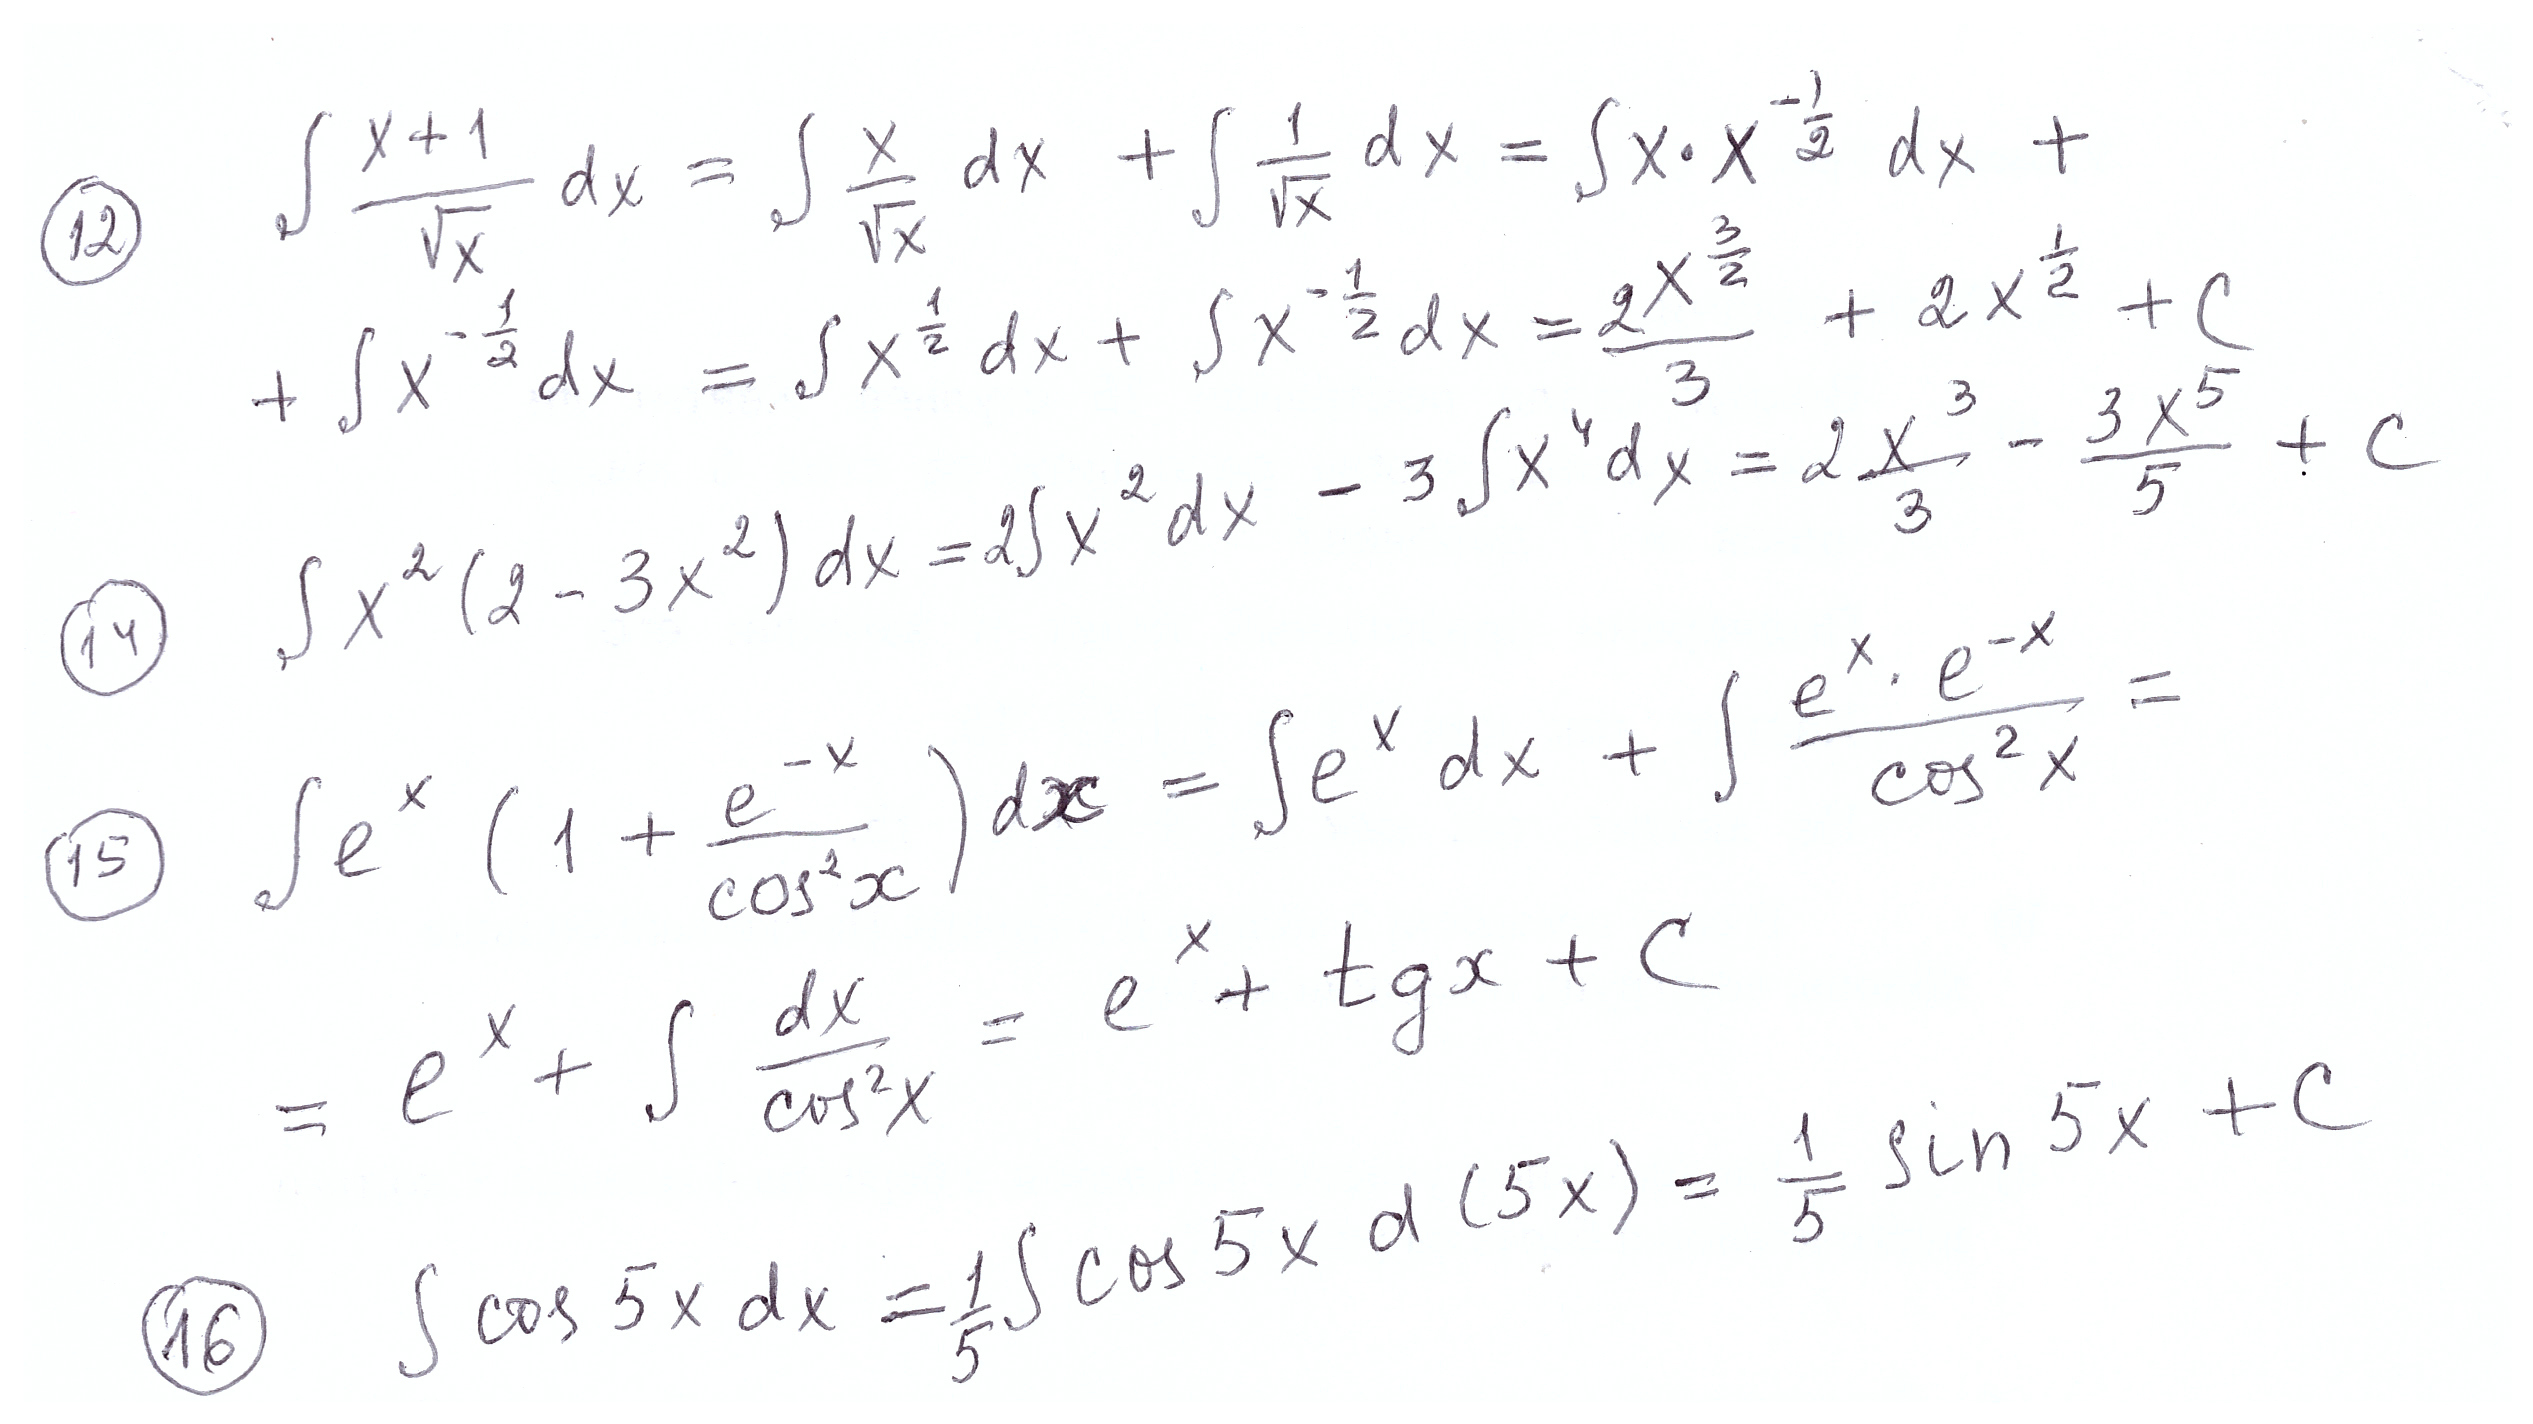 ⑫ ∫ (x+1)/√x dx = ∫ x/√x dx + ∫ 1/√x dx = ∫ x · x^(-1/2) dx +
+ ∫ x^(-1/2) dx = ∫ x^(1/2) dx + ∫ x^(-1/2) dx = 2x^(3/2)/3 + 2x^(1/2) + C
⑭ ∫ x²(2 - 3x²) dx = 2∫ x² dx - 3∫ x⁴ dx = 2 x³/3 - 3x⁵/5 + C
⑮ ∫ e^x (1 + e^(-x)/cos²x) dx = ∫ e^x dx + ∫ e^x · e^(-x)/cos²x =
= e^x + ∫ dx/cos²x = e^x + tgx + C
⑯ ∫ cos 5x dx = 1/5 ∫ cos 5x d(5x) = 1/5 sin 5x + C